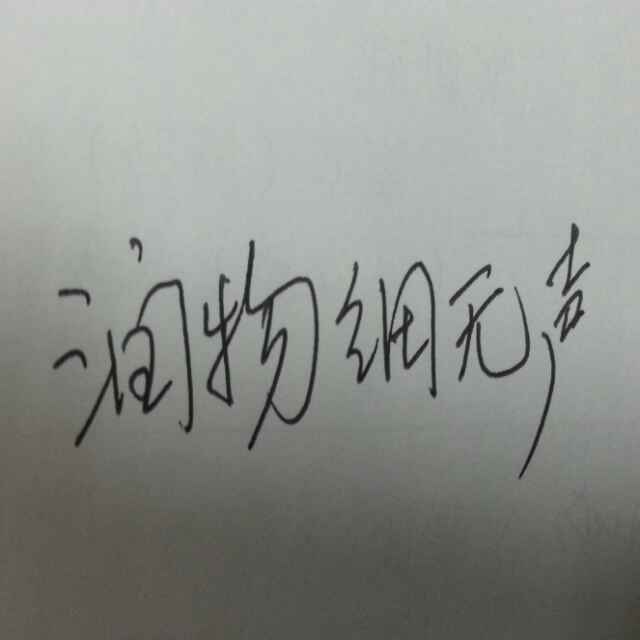 润物细无声